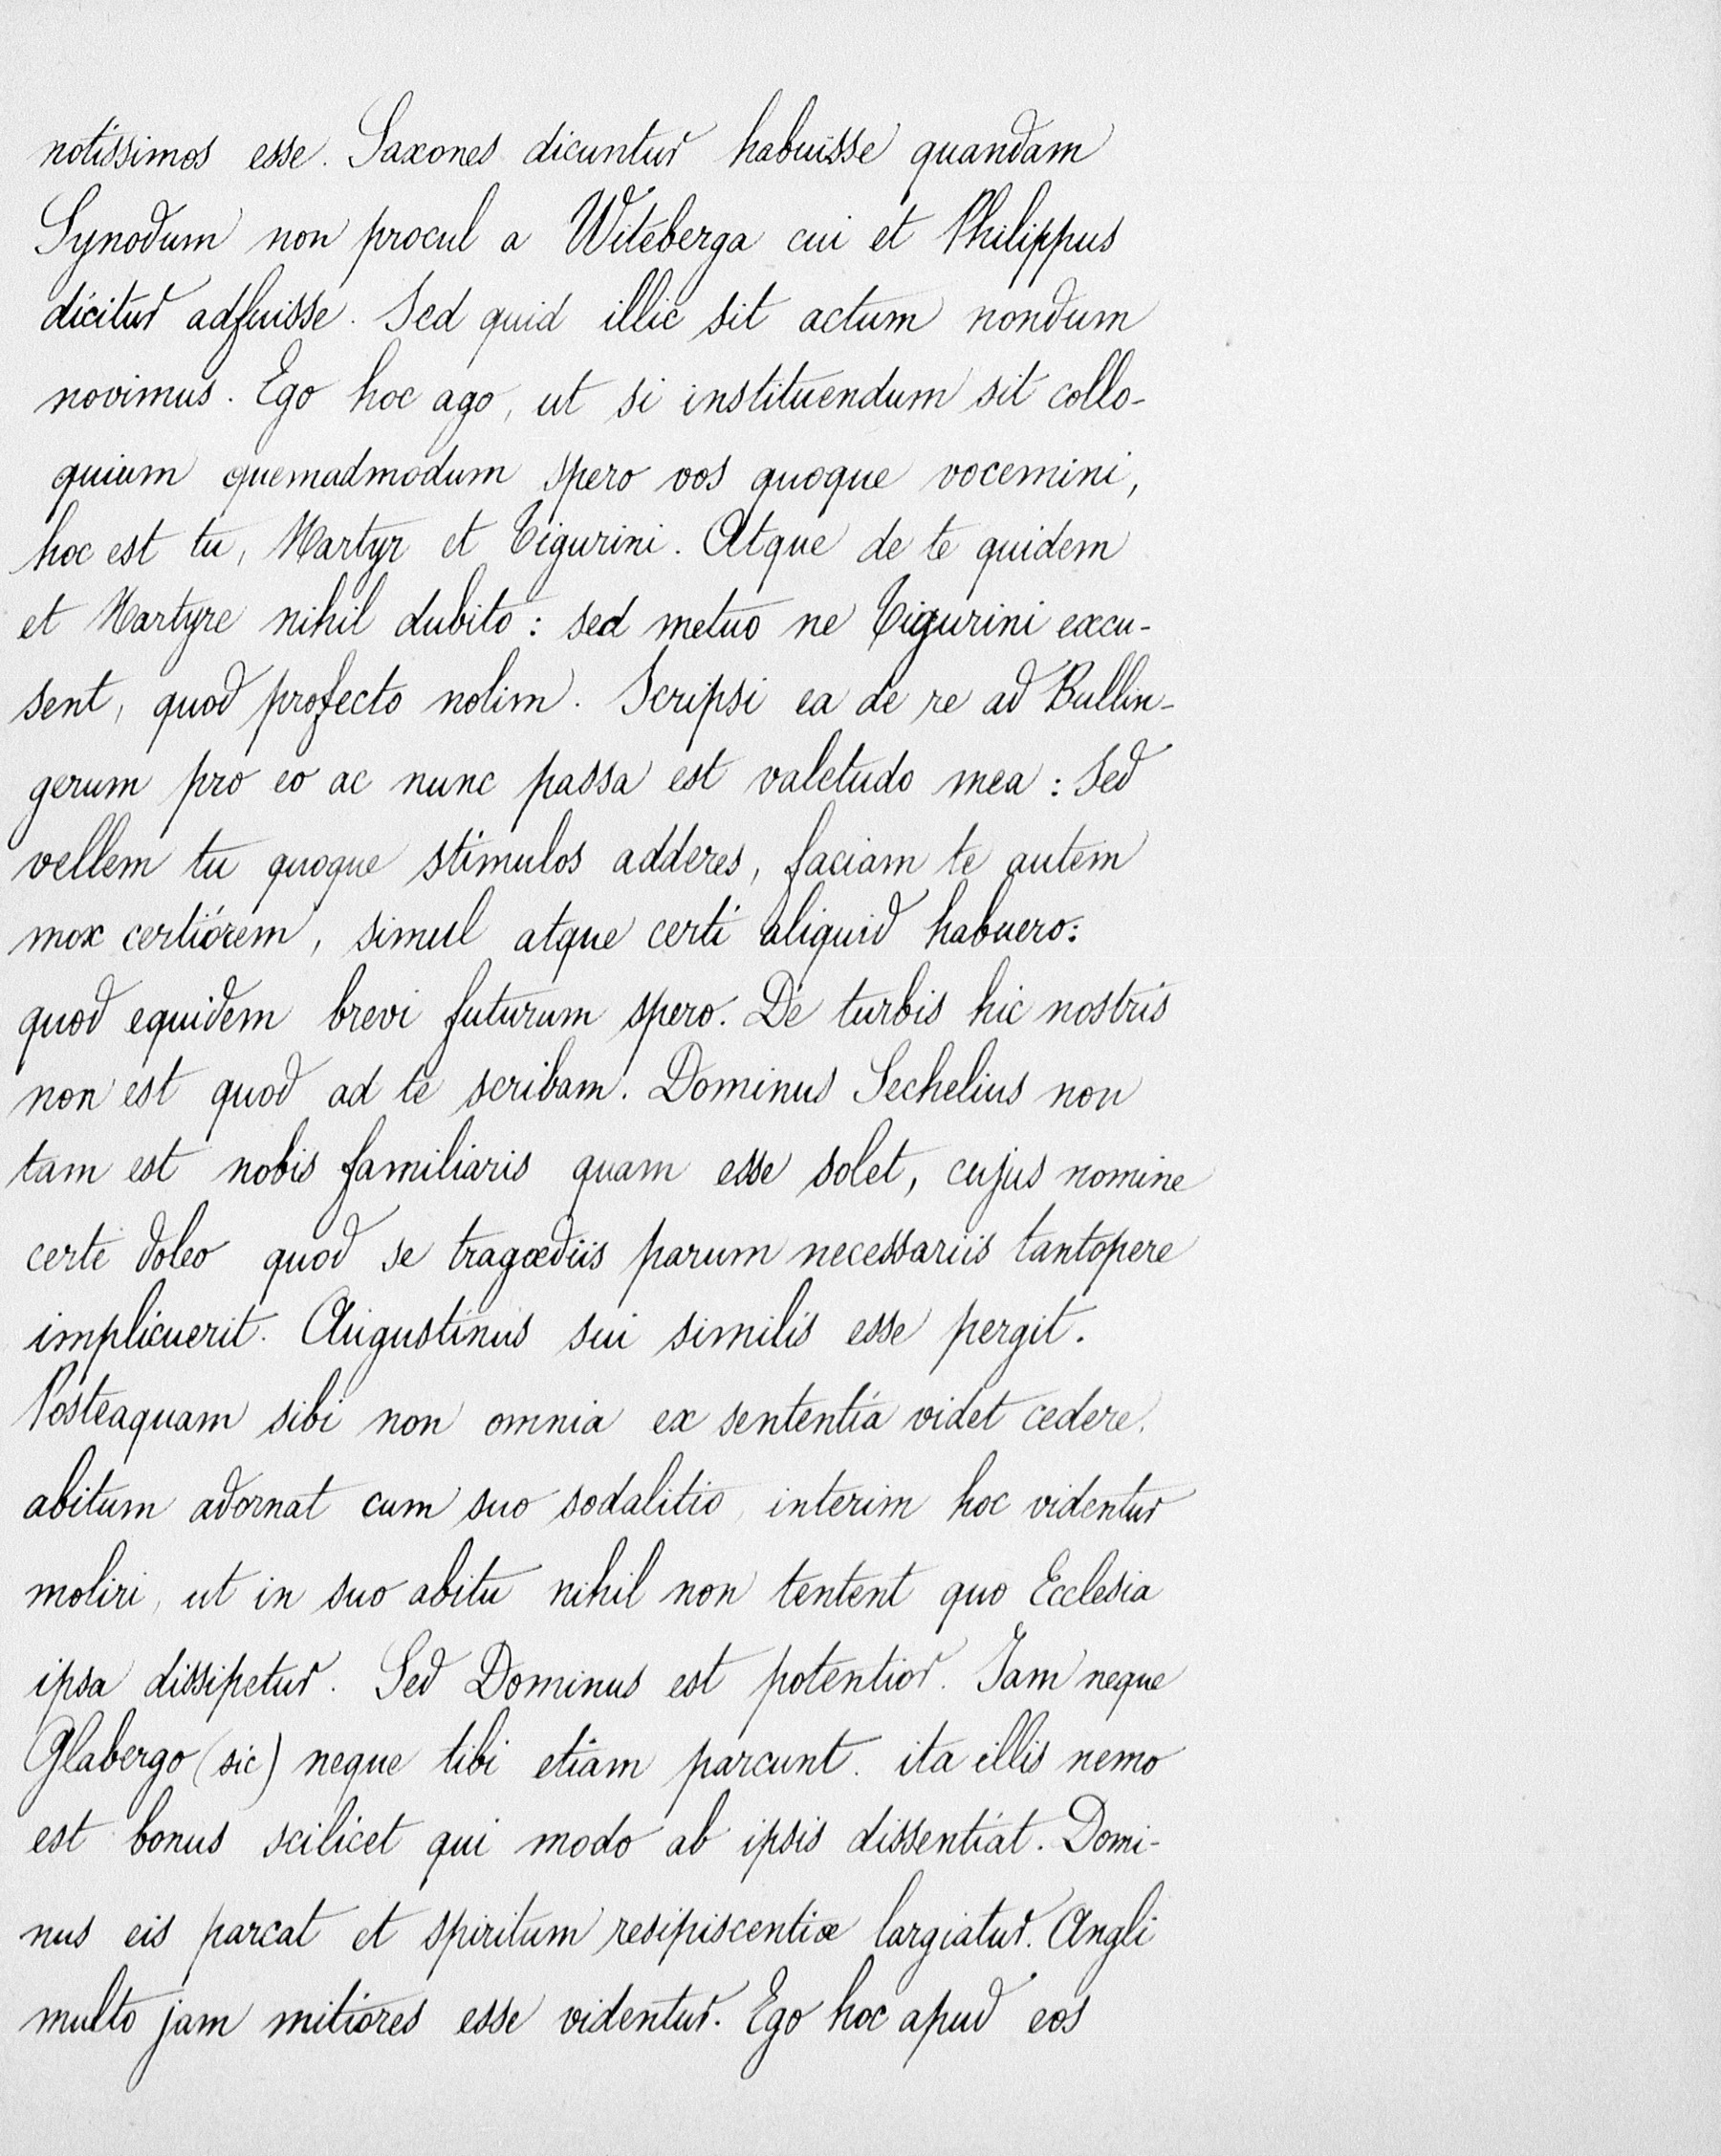 notissimos esse. Saxones dicuntur habuisse quandam
Synodum non procul a Witeberga cui et Philippus
dicitur adfuisse. Sed quid illic sit actum nondum
novimus. Ego hoc ago, ut si instituendum sit collo-
quium quemadmodum spero vos quoque vocemini,
hoc est tu, Martyr et Tigurini. Atque de te quidem
et Martyre nihil dubito : sed metuo ne Tigurini excu-
sent, quod profecto nolim. Scripsi ea de re ad Bullin-
gerum pro eo ac nunc passa est valetudo mea : Sed
vellem tu quoque stimulos adderes, faciam te autem
mox certiorem, simul atque certi aliquid habuero:
quod equidem brevi futurum spero. De turbis hic nostris
non est quod ad te scribam. Dominus Sechelius non
tam est nobis familiaris quam esse solet, cujus nomine
certe doleo quod se tragœdiis parum necessariis tantopere
implicuerit. Augustinus sui similis esse pergit.
Posteaquam sibi non omnia ex sententia videt cedere.
abitum adornat cum suo sodalitio, interim hoc videntur
moliri, ut in suo abitu nihil non tentent quo Ecclesia
ipsa dissipetur. Sed Dominus est potentior. Jam neque
Glabergo (sic) neque tibi etiam parcunt. ita illis nemo
est bonus scilicet qui modo ab ipsis dissentiat. Domi-
nus eis parcat et spiritum resipiscentiæ largiatur. Angli
multo jam mitiores esse videntur. Ego hoc apud eos